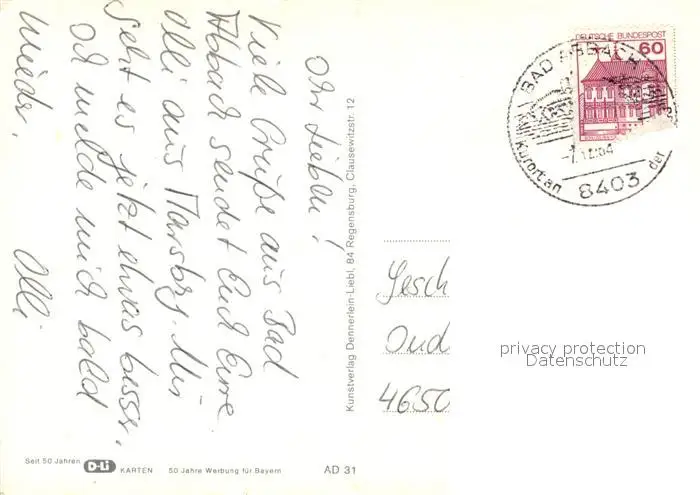 Ihr Lieben!
Viele Grüße aus Bad
Abbach sendet Euch Eure
Olli aus Marsberg. Mir
geht es jetzt etwas besser.
Ich melde mich bald
wieder.
Olli
Kunstverlag Dennerlein-Liebl, 84 Regensburg, Clausewitzstr. 12
DEUTSCHE BUNDESPOST
60
BAD ABBACH
8403
Kurort an der
Gesch
4650
privacy protection
Datenschutz
Seit 50 Jahren
D-Li KARTEN 50 Jahre Werbung für Bayern
AD 31